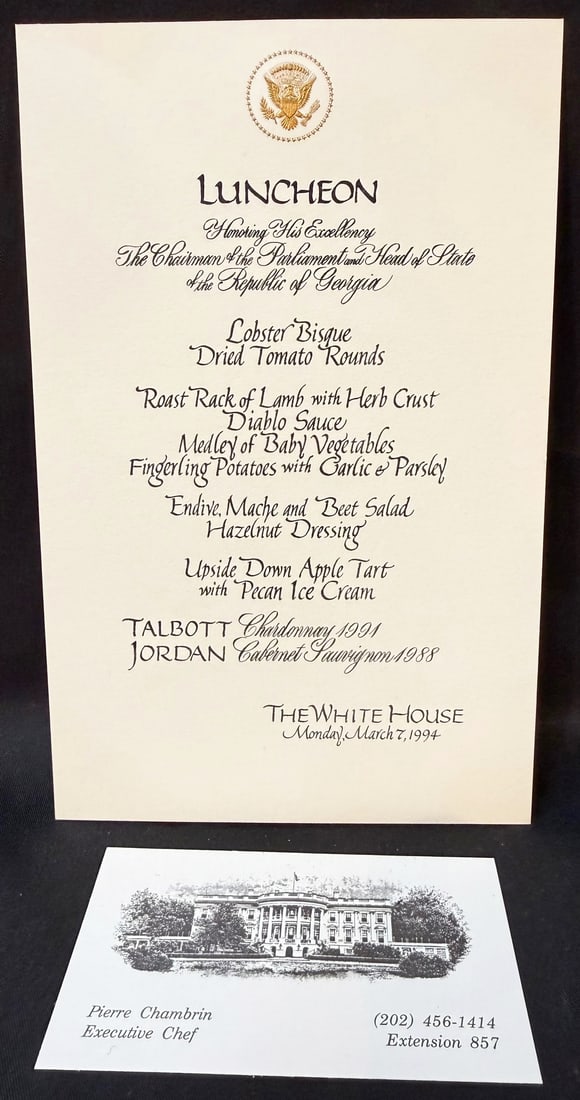 LUNCHEON
Honoring His Excellency
The Chairman of the Parliament and Head of State
of the Republic of Georgia
Lobster Bisque
Dried Tomato Rounds
Roast Rack of Lamb with Herb Crust
Diablo Sauce
Medley of Baby Vegetables
Fingerling Potatoes with Garlic & Parsley
Endive, Mache and Beet Salad
Hazelnut Dressing
Upside Down Apple Tart
with Pecan Ice Cream
TALBOTT Chardonnay 1991
JORDAN Cabernet Sauvignon 1988
THE WHITE HOUSE
Monday, March 7, 1994
Pierre Chambrin
Executive Chef
(202) 456-1414
Extension 857